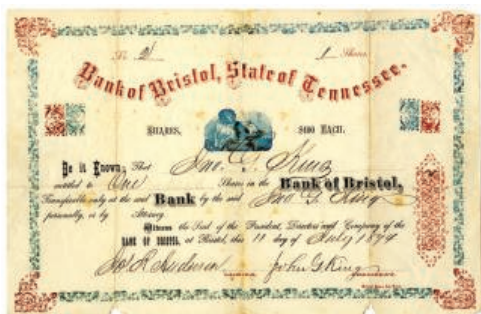 No. 21 1 Shares
Bank of Bristol, State of Tennessee.
SHARES, $100 EACH.
Be it Known, That Jno. G. King
entitled to One Shares in the Bank of Bristol,
Transferable only at the said Bank by the said Jno. G. King
personally, or by Attorney
Witness the Seal of the President, Directors and Company of the
BANK OF BRISTOL, at Bristol, this 11 day of July 1899
Jos. R. Anderson John G King